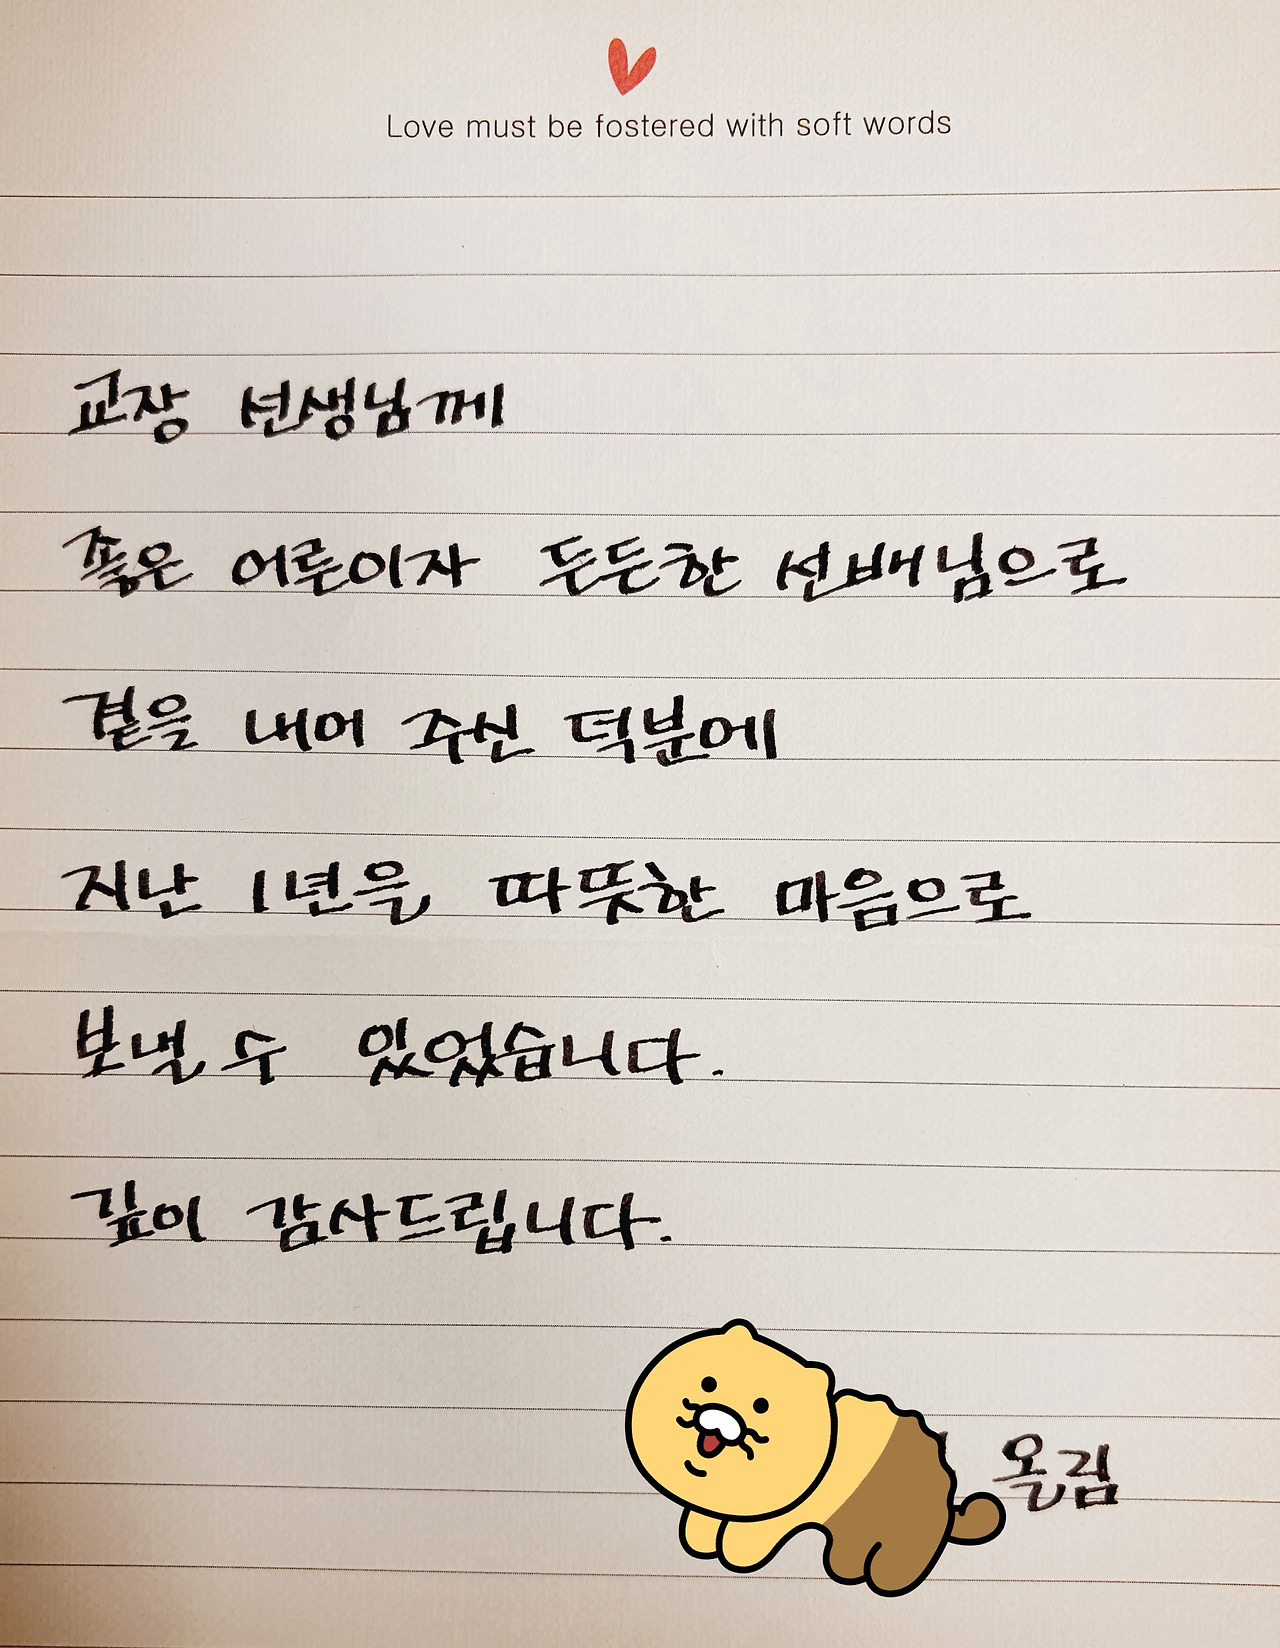 Love must be fostered with soft words
교장 선생님께
좋은 어른이자 든든한 선배님으로
곁을 내어 주신 덕분에
지난 1년을 따뜻한 마음으로
보낼 수 있었습니다.
깊이 감사드립니다.
올림